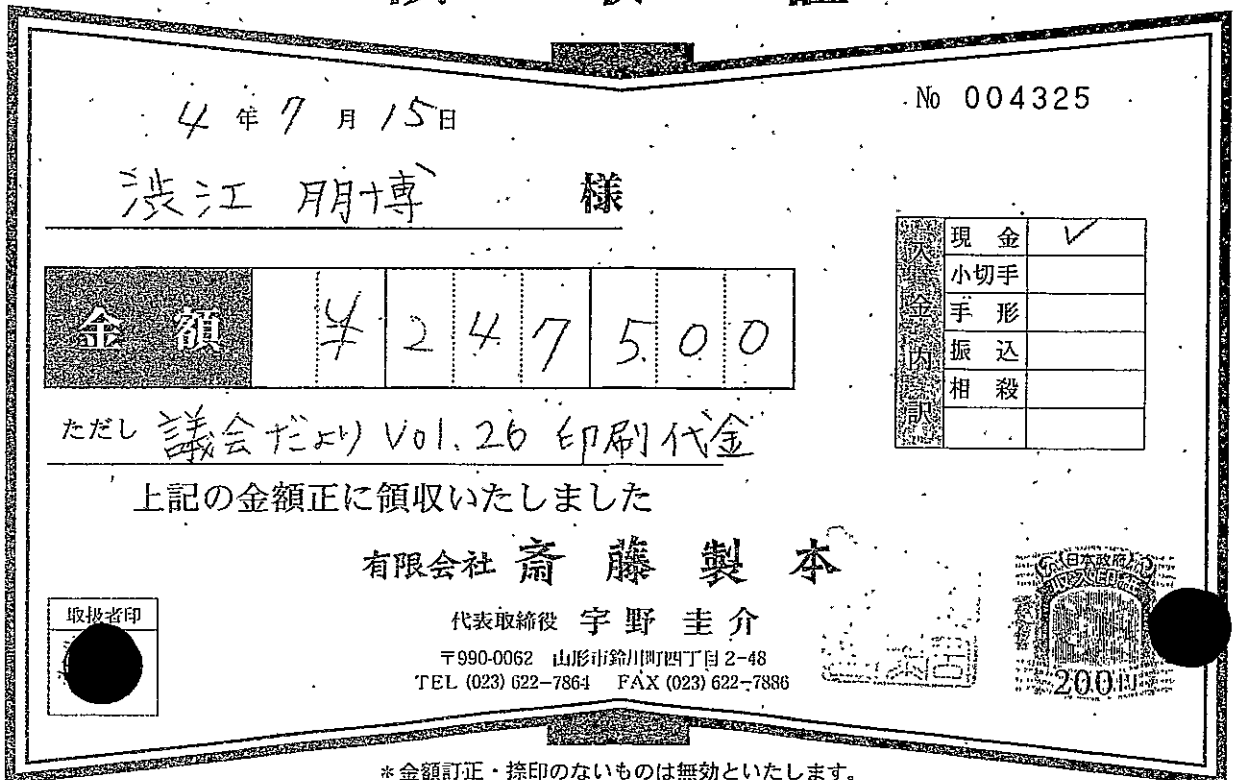 No 004325
4年7月15日
渋江 朋博 様
金額 ¥247500
ただし 議会だより Vol.26 印刷代金
上記の金額正に領収いたしました
入金内訳
現金 ✓
小切手
手形
振込
相殺
有限会社 斎藤製本
代表取締役 宇野圭介
〒990-0062 山形市鈴川町四丁目2-48
TEL (023) 622-7864 FAX (023) 622-7886
取扱者印
日本政府
収入印紙
200円
*金額訂正・捺印のないものは無効といたします。